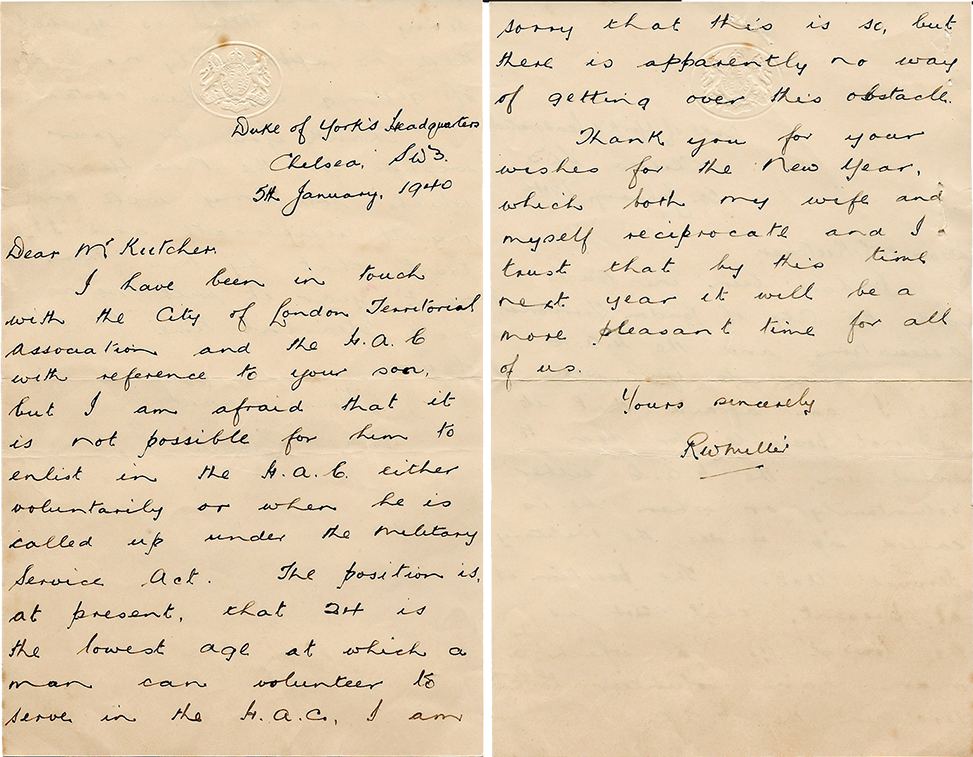 Duke of York's Headquarters
Chelsea, SW3.
5th January, 1940
Dear Mr Kutcher.
I have been in touch
with the City of London Territorial
Association and the H.A.C
with reference to your son,
but I am afraid that it
is not possible for him to
enlist in the H.A.C. either
voluntarily or when he is
called up under the Military
Service Act. The position is,
at present, that 24 is
the lowest age at which a
man can volunteer to
serve in the H.A.C. I am
sorry that this is so, but
there is apparently no way
of getting over this obstacle.
Thank you for your
wishes for the New Year,
which both my wife and
myself reciprocate and I
trust that by this time
next year it will be a
more pleasant time for all
of us.
Yours sincerely